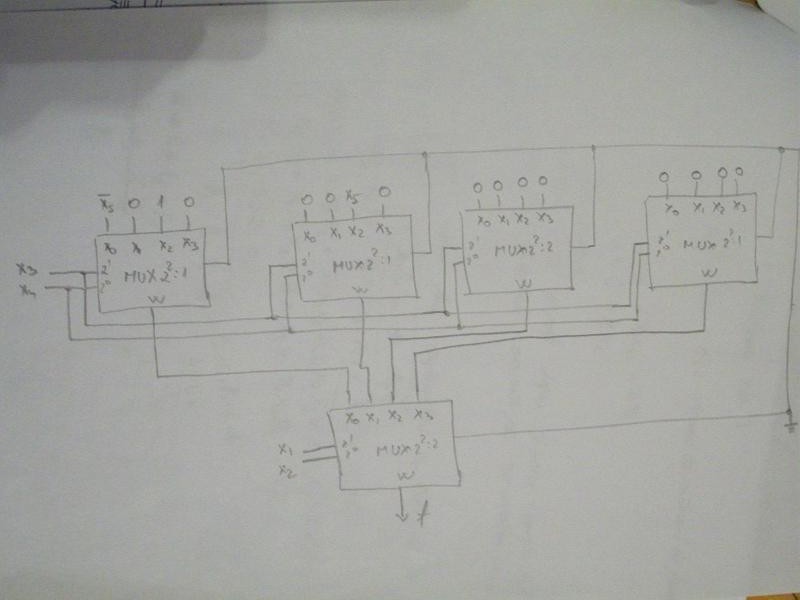 x̄5 0 1 0
x0 x1 x2 x3
2¹
2⁰
MUX 2²:1
W
0 0 x5 0
x0 x1 x2 x3
2¹
2⁰
MUX 2²:1
W
0 0 0 0
x0 x1 x2 x3
2¹
2⁰
MUX 2²:2
W
0 0 0 0
x0 x1 x2 x3
2¹
2⁰
MUX 2²:1
W
x3
x4
x0 x1 x2 x3
x1
x2
2¹
2⁰
MUX 2²:2
W
f